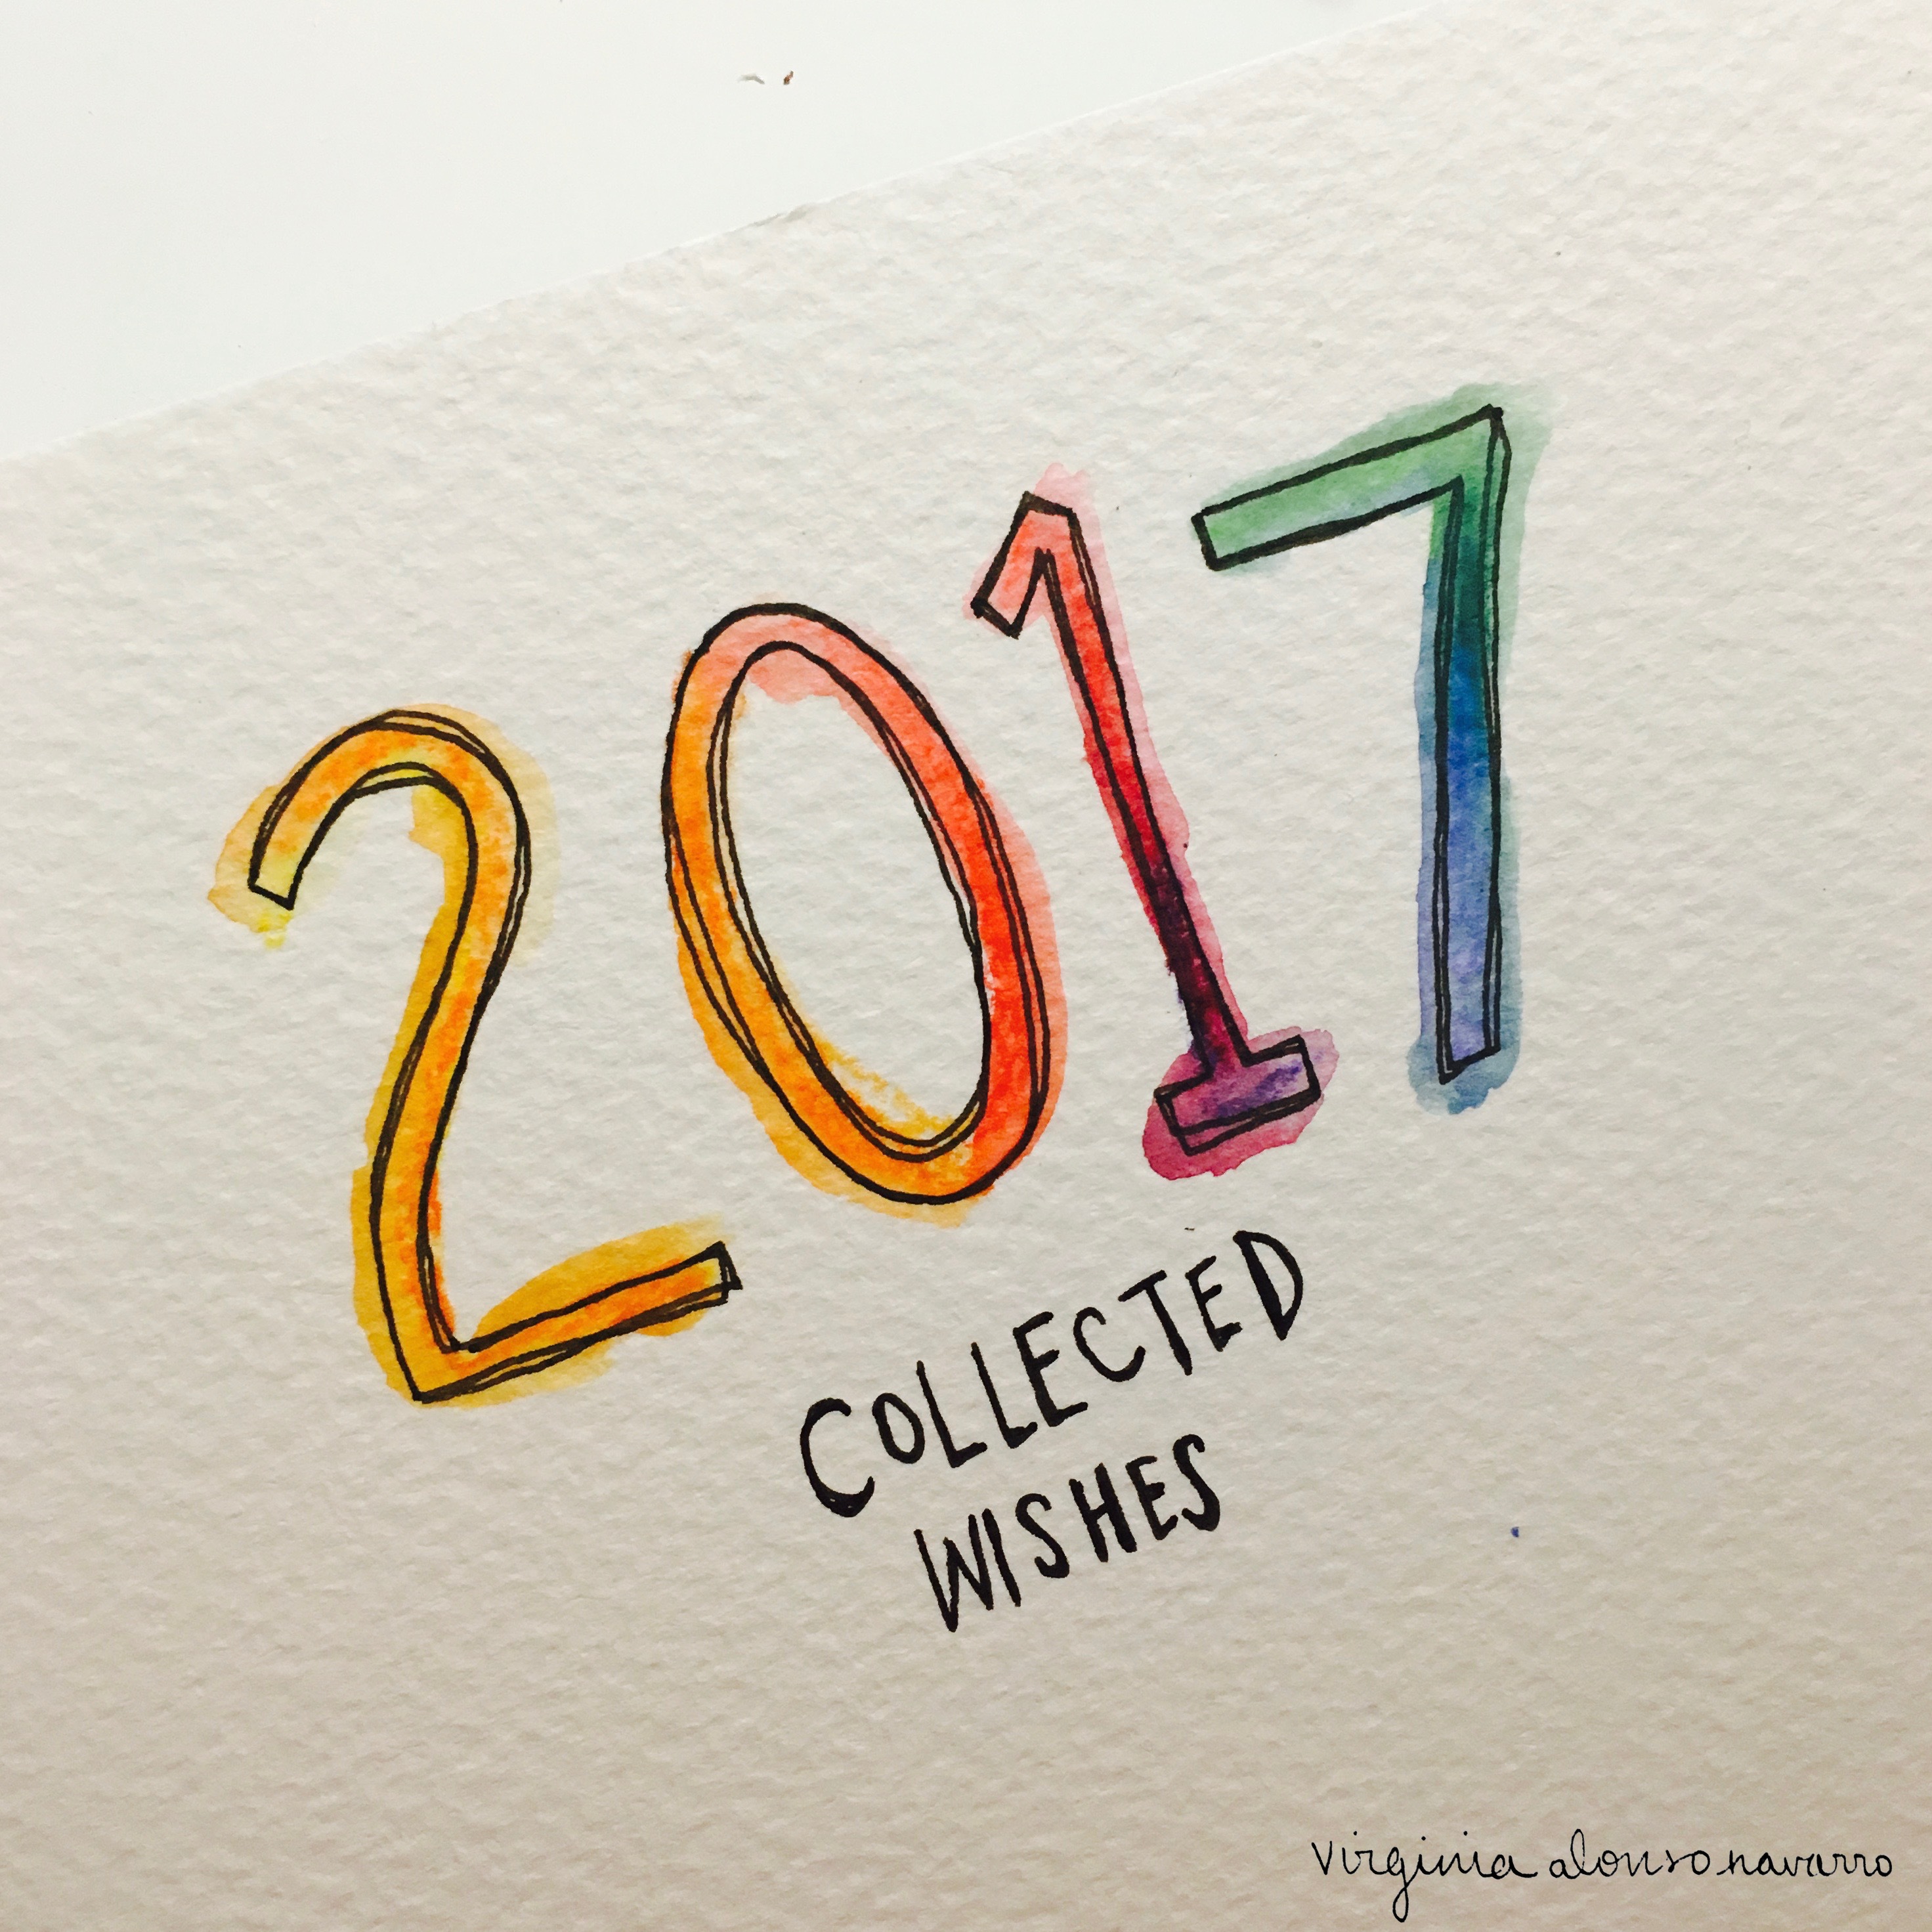 2017
COLLECTED
WISHES
virginia alonso navarro